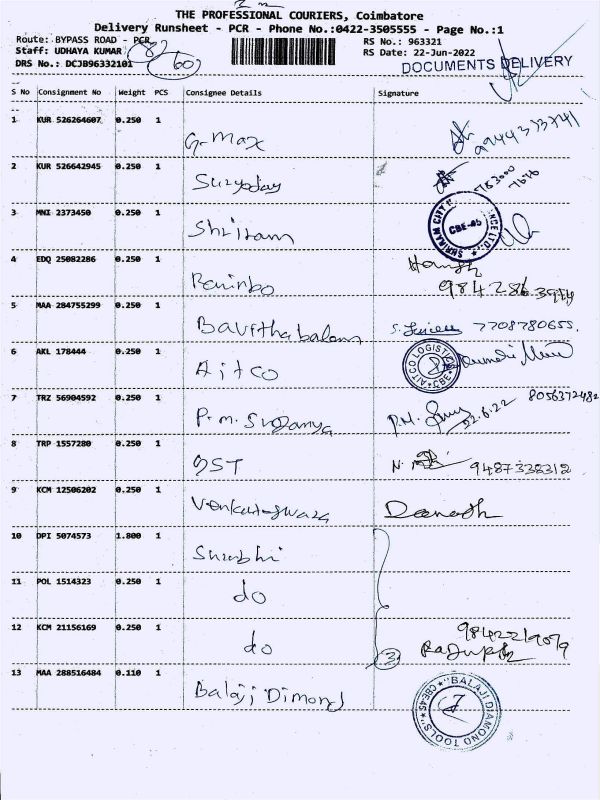 THE PROFESSIONAL COURIERS, Coimbatore
Delivery Runsheet - PCR - Phone No.:0422-3505555 - Page No.:1
Route: BYPASS ROAD - PCR
Staff: UDHAYA KUMAR
DRS No.: DCJB96332101
82
60
RS No.: 963321
RS Date: 22-Jun-2022
DOCUMENTS DELIVERY
S No Consignment No Weight PCS Consignee Details Signature
1 KUR 526264607 0.250 1 G-Max 9944373741
2 KUR 526642945 0.250 1 Suryoday
3 MNI 2373450 0.250 1 Shriram CBE-45
4 EDQ 25082286 0.250 1
5 MAA 284755299 0.250 1 Bavithabalan 7708780655.
6 AKL 178444 0.250 1 Aitco AITCO LOGISTICS CBE
7 TRZ 56904592 0.250 1 P.M. Suganya P.M. 22.6.22 8056372482
8 TRP 1557280 0.250 1 GST N. 9487338312
9 KCM 12506202 0.250 1 Venkateswara
10 DPI 5074573 1.800 1 Surabhi
11 POL 1514323 0.250 1 do
12 KCM 21156169 0.250 1 do 3 9842219079
13 MAA 288516484 0.110 1 Balaji Dimond "BALAJI DIAMOND TOOLS" CBE-45